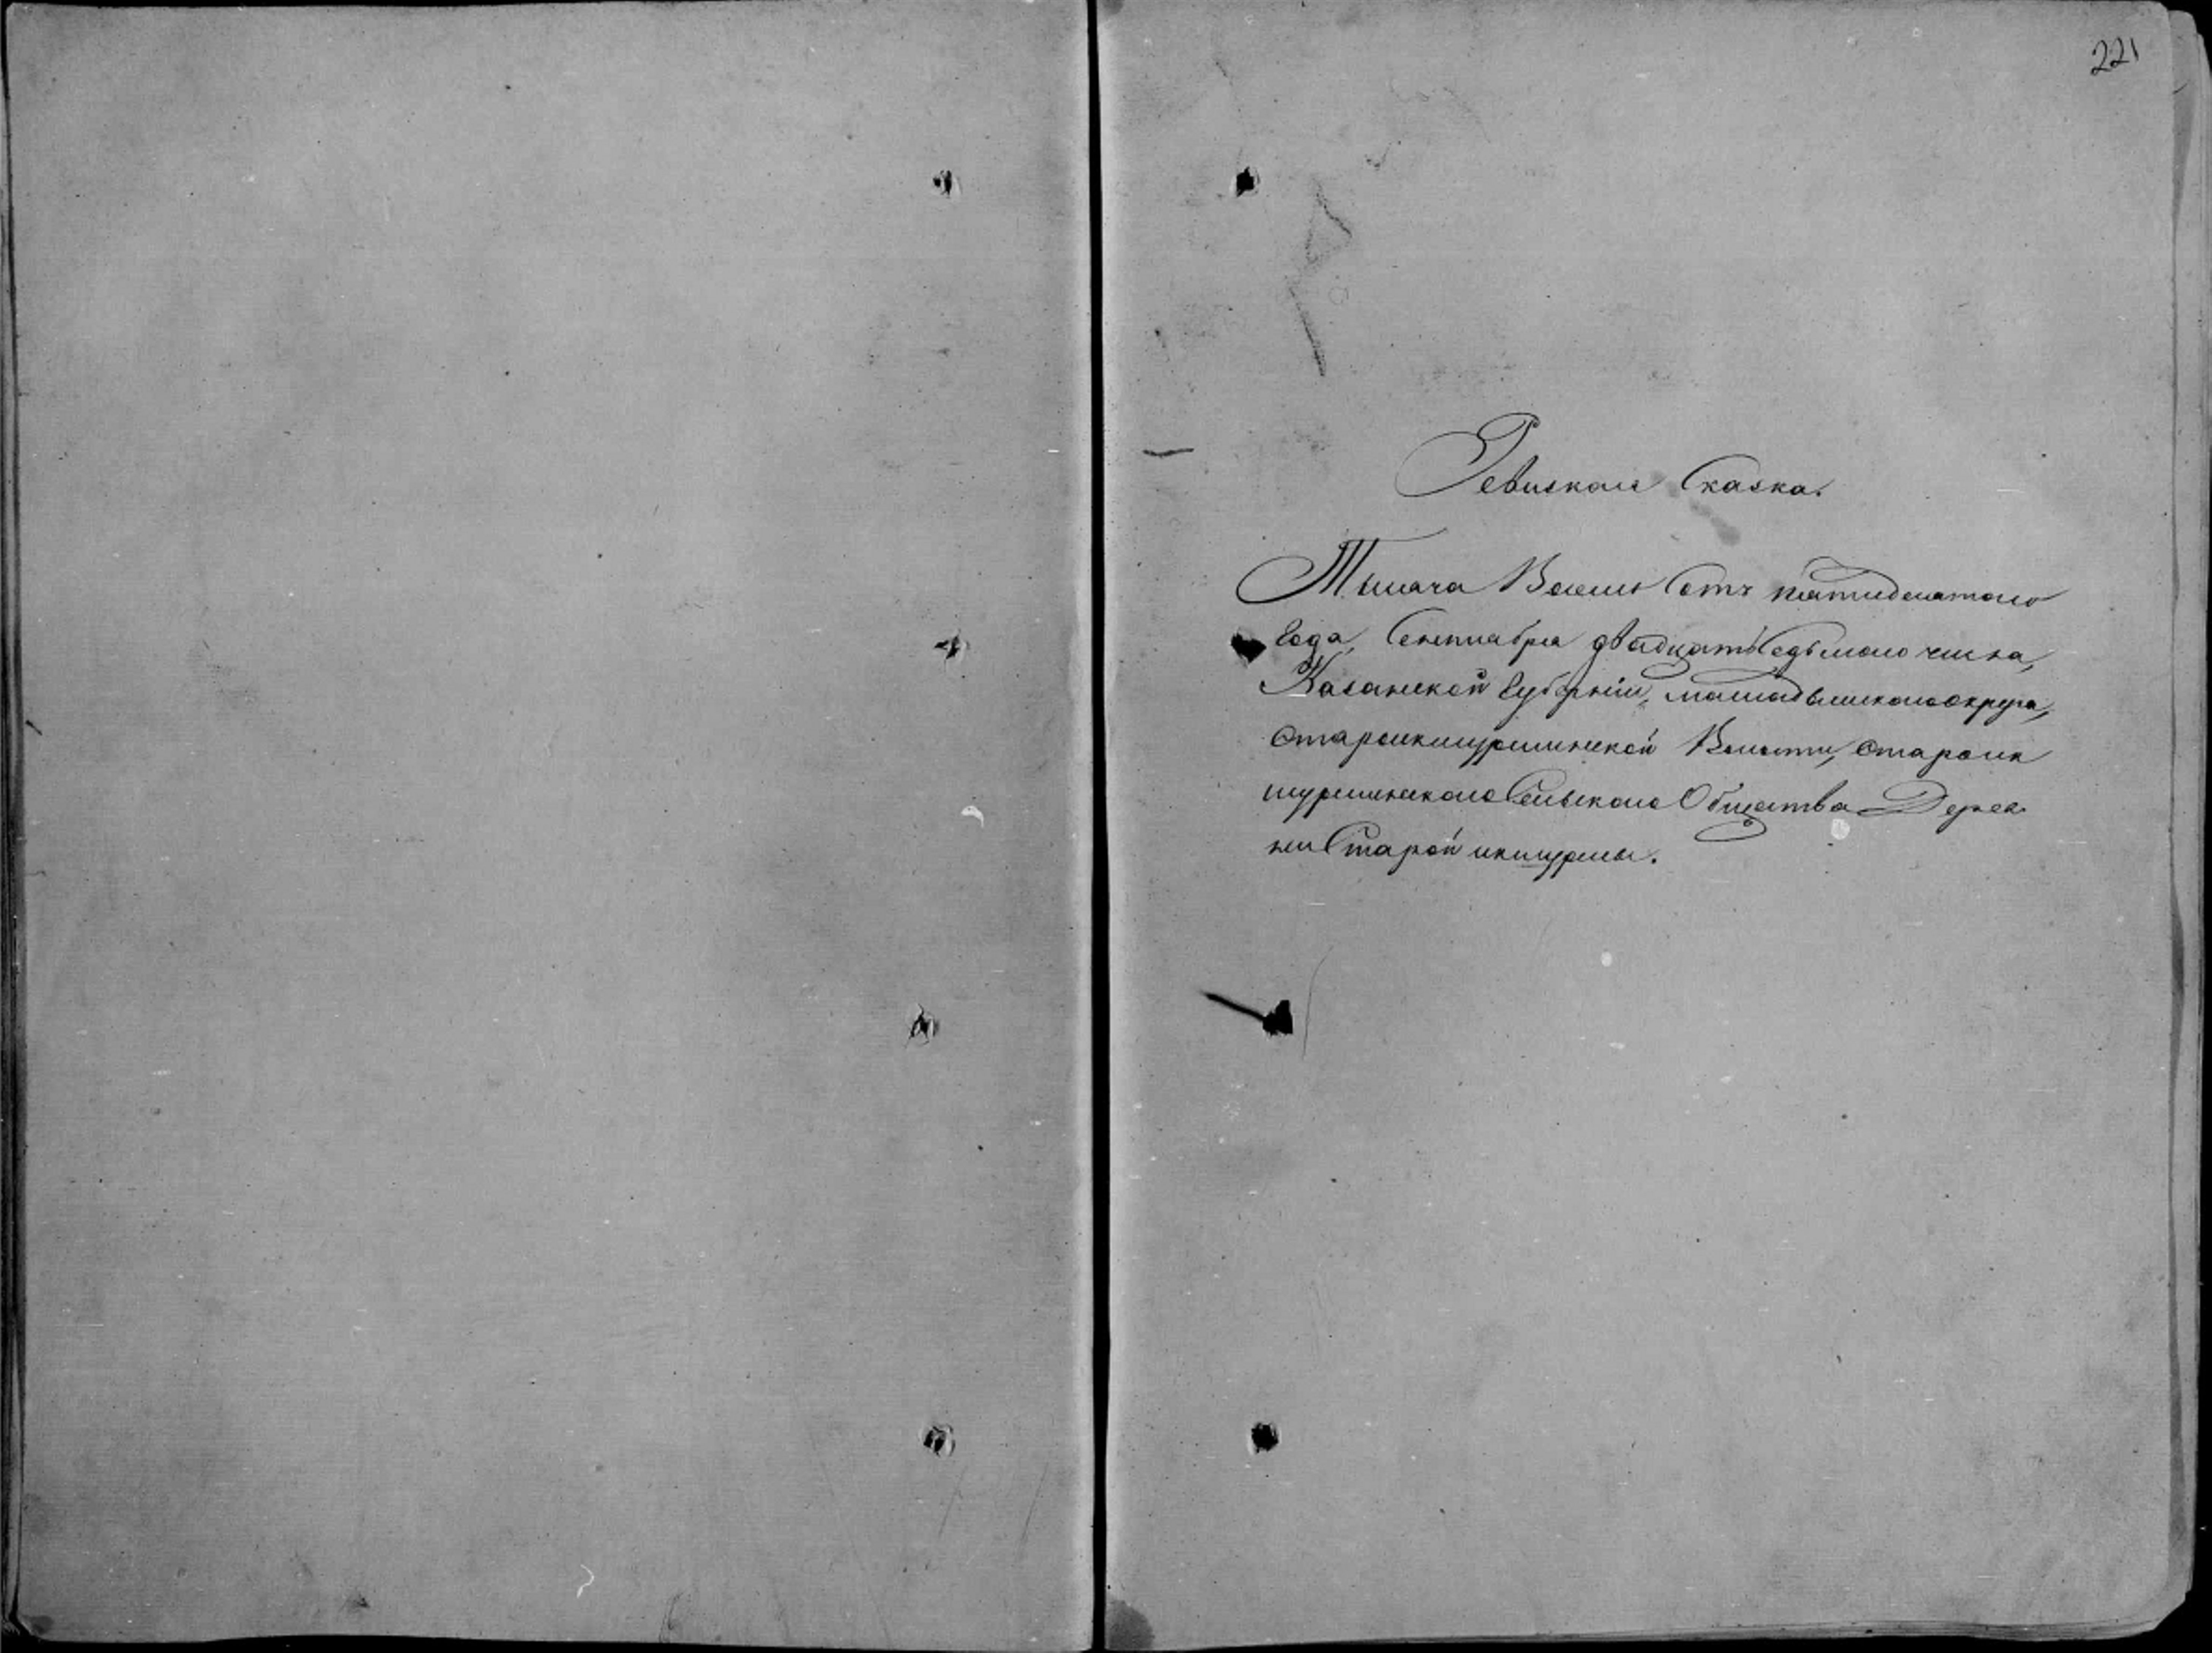 221
Ревизкая Сказка.
Тысяча Восемь Сотъ пятидесятого
Года, Сентября двадцать седьмого числа,
Казанской Губернiи, Мамадышского округа,
Староикшурминской Волости, Староик
шурминского Сельского Общества Дерев
ни Старой икшурмы.